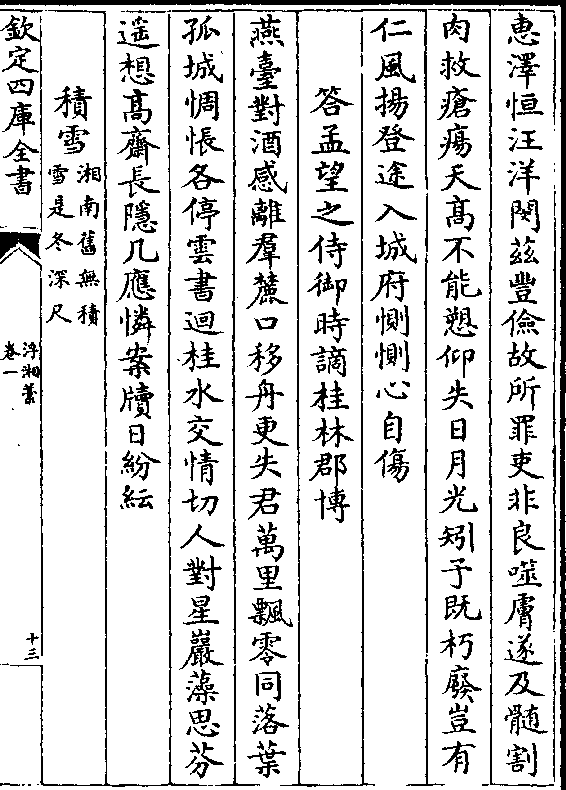 惠澤恒汪洋閔茲豐儉故所罪吏非良噬膚遂及髄割
肉救瘡瘍天髙不能愬仰失日月光矧予既朽廢豈有
仁風揚登途入城府惻惻心自傷
答孟望之侍御時謫桂林郡博
燕臺對酒感離羣麓口移舟更失君萬里飄零同落葉
孤城惆悵各停雲書迴桂水交情切人對星巖藻思芬
遥想髙齋長隱几應憐案牘日紛紜
積雪湘南舊無積
雪是冬深尺
欽定四庫全書
浮湘藁
卷一
十三